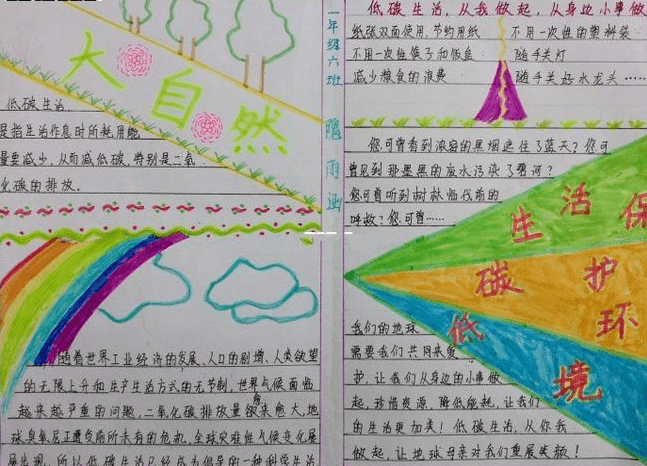 大自然
低碳生活
是指生活作息时所耗用能
量要减少,从而减低碳,特别是二氧
化碳的排放.
随着世界工业经济的发展、人口的剧增、人类欲望
的无限上升和生产生活方式的无节制,世界气候面临
越来越严重的问题,二氧化碳排放量愈来愈大,地
球臭氧层正遭受前所未有的危机,全球灾难性气候变化屡
屡出现,所以低碳生活已经成为倡导的一种科学生活
一年级六班 隋雨涵
低碳生活,从我做起,从身边小事做
纸张双面使用,节约用纸 不用一次性的塑料袋
不用一次性筷子和饭盒 随手关灯
减少粮食的浪费 随手关好水龙头……
您可曾看到滚滚的黑烟遮住了蓝天?您可
曾见到那墨黑的废水污染了碧河?
您可曾听到树林临伐前的
呼救?您可曾……
生活保
碳护
低环
境
我们的地球
需要我们共同来爱
护,让我们从身边的小事做
起,珍惜资源、降低能耗,让我们
的生活更加美!低碳生活,从你我
做起,让地球母亲对我们重展笑颜!